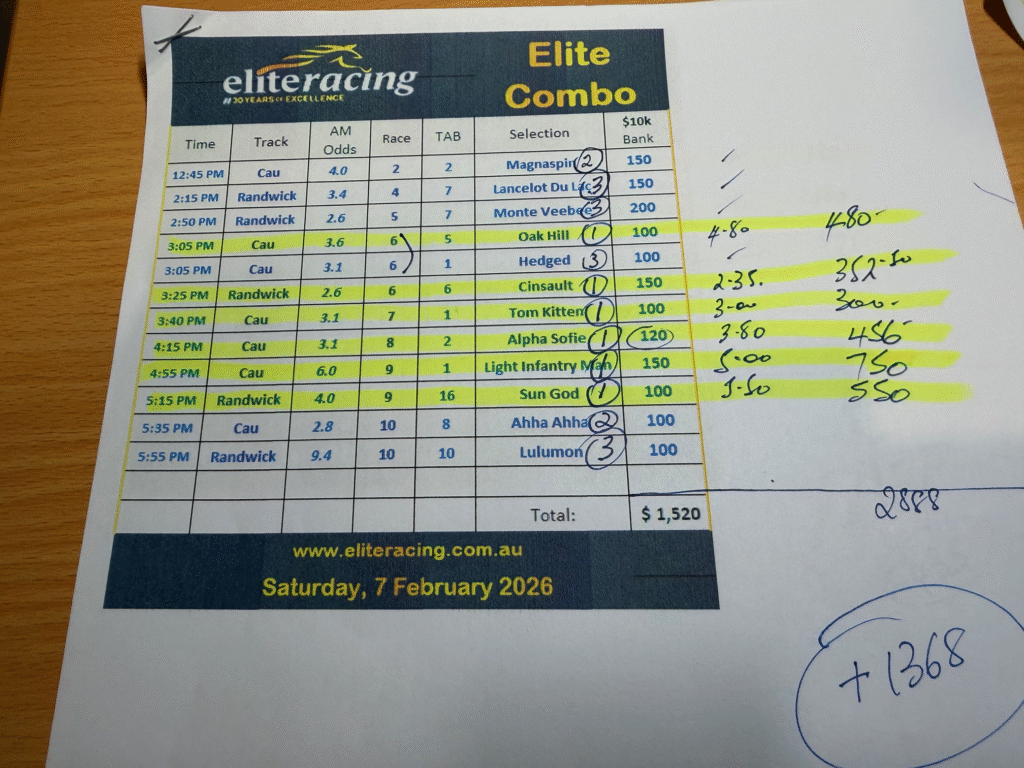 eliteracing
// 30 YEARS OF EXCELLENCE
Elite
Combo
Time Track AM Odds Race TAB Selection $10k Bank
12:45 PM Cau 4.0 2 2 Magnaspin 2 150
2:15 PM Randwick 3.4 4 7 Lancelot Du Lac 3 150
2:50 PM Randwick 2.6 5 7 Monte Veebee 3 200
3:05 PM Cau 3.6 6 5 Oak Hill 1 100 4.80 480-
3:05 PM Cau 3.1 6 1 Hedged 3 100
3:25 PM Randwick 2.6 6 6 Cinsault 1 150 2.35. 352-50
3:40 PM Cau 3.1 7 1 Tom Kitten 1 100 3-00 300-
4:15 PM Cau 3.1 8 2 Alpha Sofie 1 120 3.80 456-
4:55 PM Cau 6.0 9 1 Light Infantry Man 1 150 5.00 750
5:15 PM Randwick 4.0 9 16 Sun God 1 100 5.50 550
5:35 PM Cau 2.8 10 8 Ahha Ahha 2 100
5:55 PM Randwick 9.4 10 10 Lulumon 3 100
Total: $ 1,520
2888
www.eliteracing.com.au
Saturday, 7 February 2026
+1368